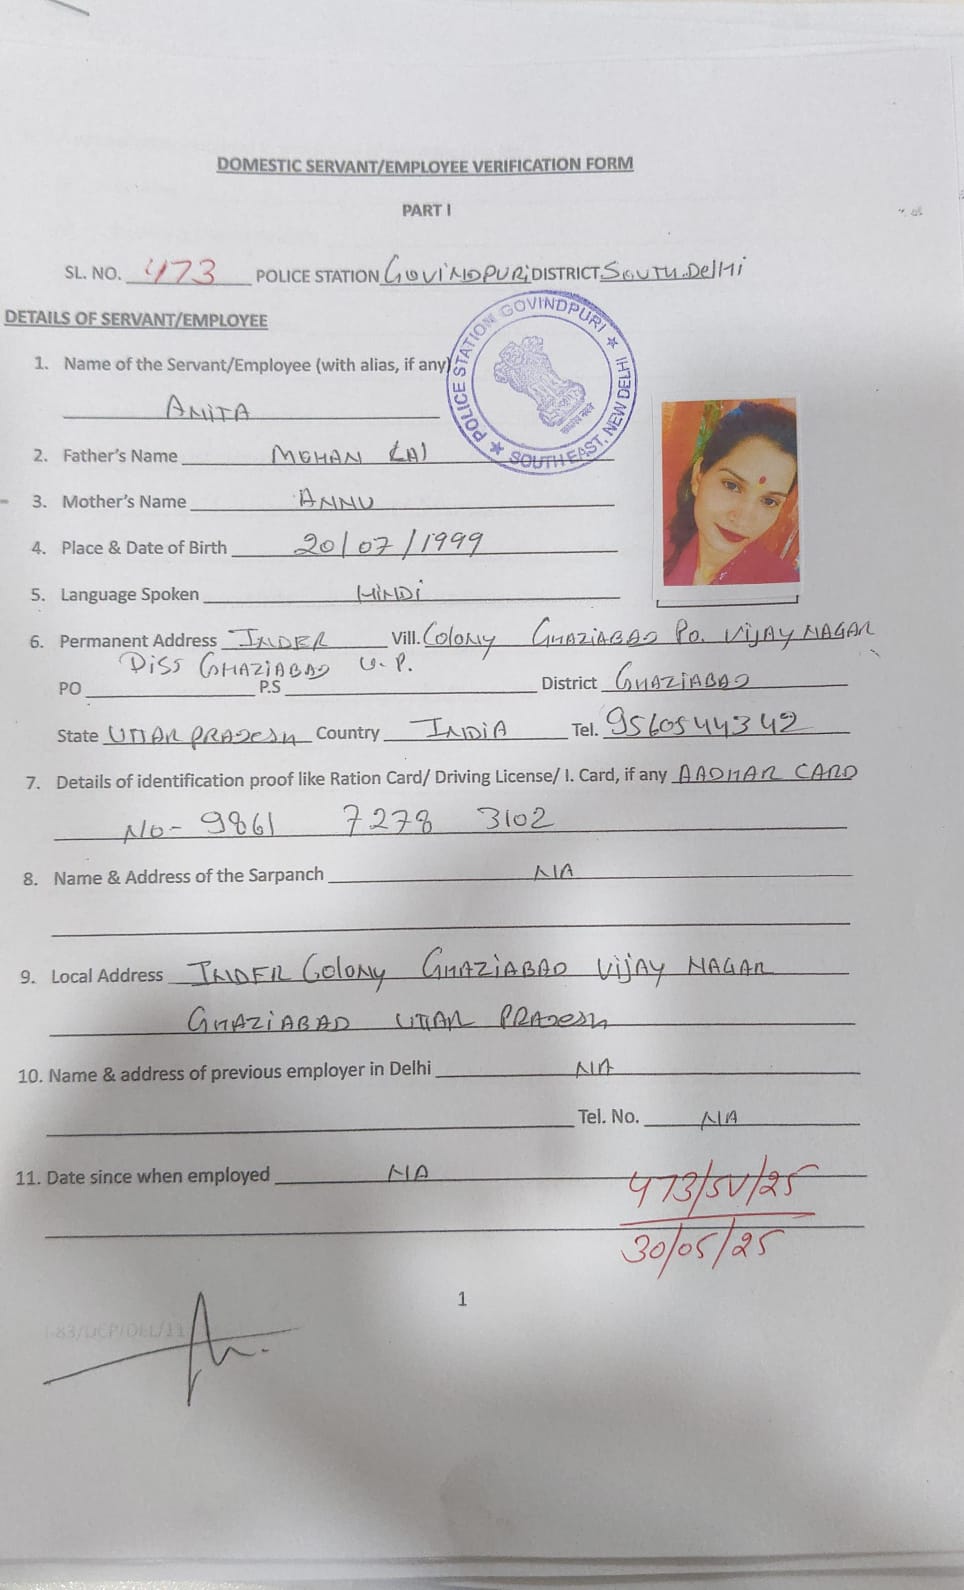 DOMESTIC SERVANT/EMPLOYEE VERIFICATION FORM
PART I
SL. NO. 473 POLICE STATION GOVINDPURI DISTRICT. SOUTH. DelHi
DETAILS OF SERVANT/EMPLOYEE
POLICE STATION GOVINDPURI ★ SOUTH EAST, NEW DELHI ★
1. Name of the Servant/Employee (with alias, if any)
ANITA
2. Father's Name MOHAN LAl
3. Mother's Name ANNU
4. Place & Date of Birth 20/07/1999
5. Language Spoken HINDi
6. Permanent Address INDER Vill. Colony GHAZiABAD Po. VijAY NAGAR
DiSS GHAZiABAD U.P.
PO P.S District GHAZiABAD
State UTTAR PRADESH Country INDiA Tel. 9560544342
7. Details of identification proof like Ration Card/ Driving License/ I. Card, if any AADHAR CARD
No- 9861 7278 3102
8. Name & Address of the Sarpanch NIA
9. Local Address INDER Colony GHAZiABAD VijAY NAGAR
GHAZiABAD UTTAR PRADESH
10. Name & address of previous employer in Delhi NIA
Tel. No. NIA
11. Date since when employed NIA
473/SV/25
30/05/25
1